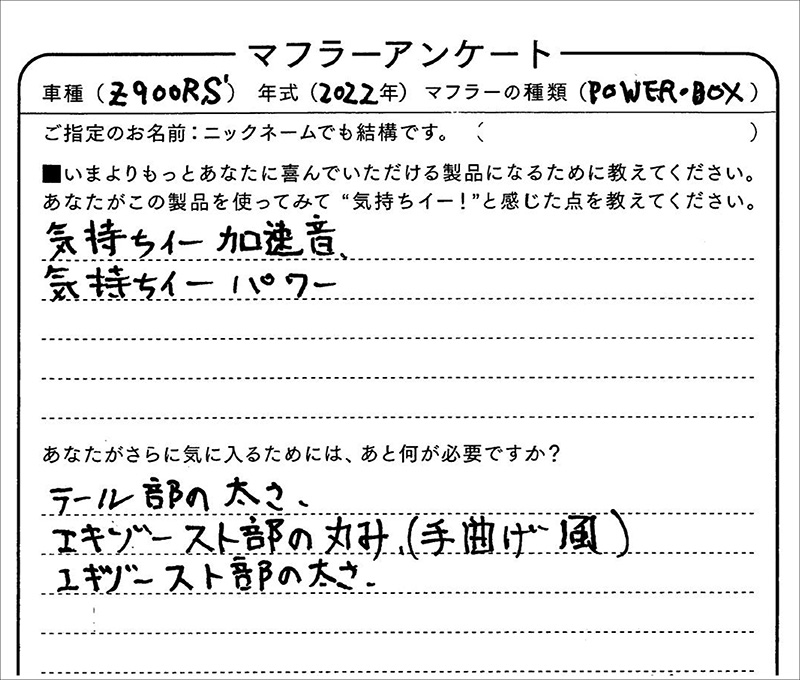 マフラーアンケート
車種（Z900RS） 年式（2022年） マフラーの種類（POWER・BOX）
ご指定のお名前：ニックネームでも結構です。（　　　）
■いまよりもっとあなたに喜んでいただける製品になるために教えてください。
あなたがこの製品を使ってみて“気持ちイー！”と感じた点を教えてください。
気持ちイー 加速音、
気持ちイー パワー
あなたがさらに気に入るためには、あと何が必要ですか？
テール部の太さ、
エキゾースト部の丸み、(手曲げ風)
エギゾースト部の太さ、